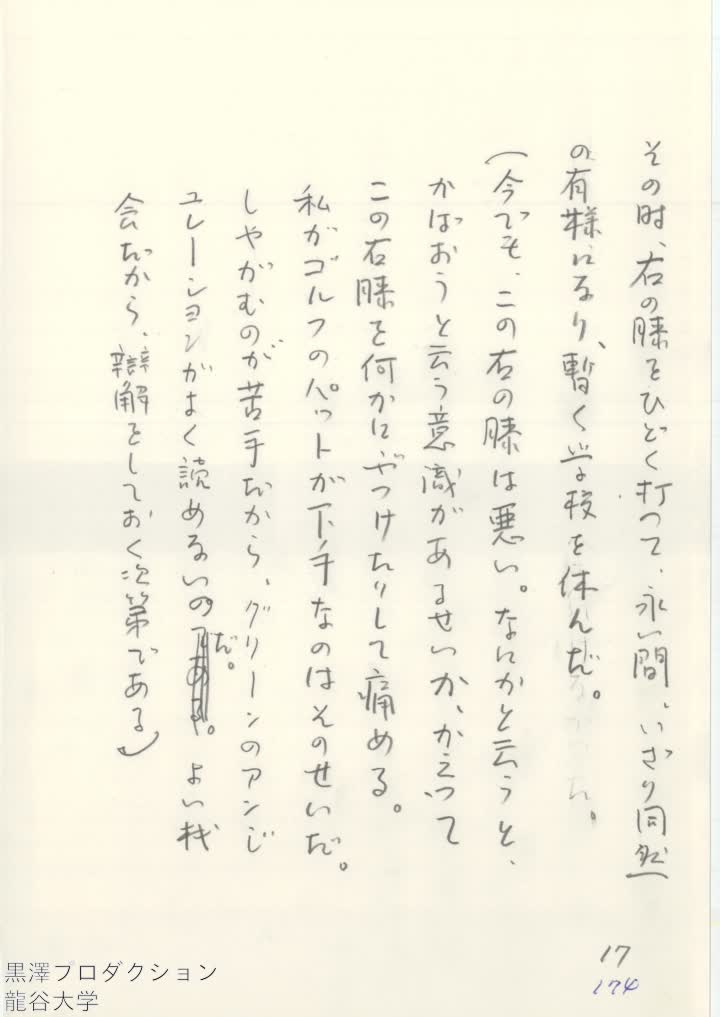 その時、右の膝をひどく打つて、永い間、いざり同然
の有様になり、暫く学校を休んだ。
(今でも、この右の膝は悪い。なにかと云うと、
かばおうと云う意識があるせいか、かえつて
この右膝を何かにぶつけたりして痛める。
私がゴルフのパットが下手なのはそのせいだ。
しやがむのが苦手だから、グリーンのアンジ
ユレーシヨンがよく読めないのだ。よい机
会だから、辯解をしておく次第である)
17
174
黒澤プロダクション
龍谷大学